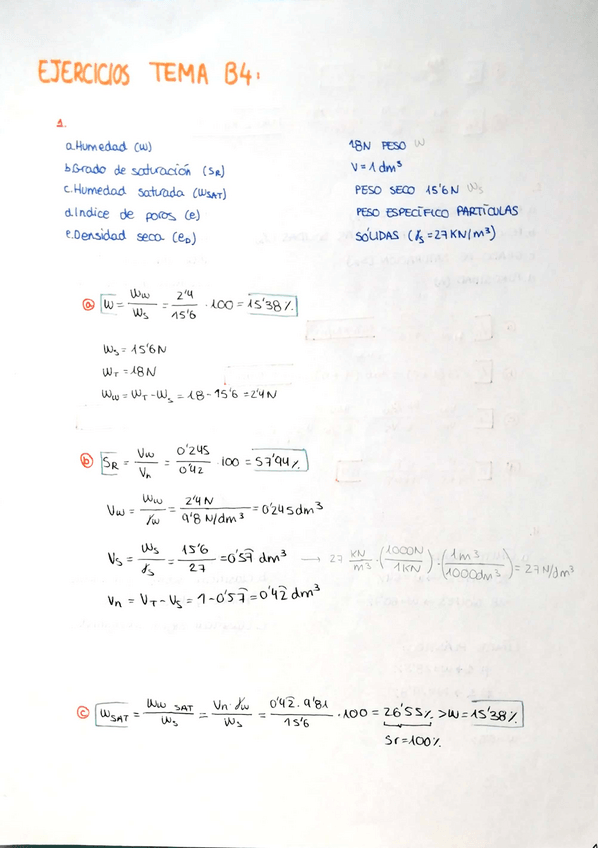 EJERCICIOS TEMA B4:
1.
a. Humedad (w)
b. Grado de saturación (SR)
c. Humedad saturada (WSAT)
d. Indice de poros (e)
e. Densidad seca (eD)
18N PESO W
V = 1 dm³
PESO SECO 15'6N Ws
PESO ESPECÍFICO PARTÍCULAS
SÓLIDAS (γs = 27 KN/m³)
a) W = Ww/Ws = 2'4/15'6 · 100 = 15'38%
Ws = 15'6N
WT = 18N
Ww = WT - Ws = 18 - 15'6 = 2'4N
b) SR = Vw/Vn = 0'245/0'42 · 100 = 57'94%
Vw = Ww/γw = 2'4N/9'8 N/dm³ = 0'245dm³
Vs = Ws/γs = 15'6/27 = 0'57 dm³ → 27 KN/m³ · (1000N/1KN) · (1m³/1000dm³) = 27N/dm³
Vn = VT - Vs = 1 - 0'57 = 0'42 dm³
c) WSAT = Ww SAT/Ws = Vn · γw/Ws = 0'42 · 9'81/15'6 · 100 = 26'55% > W = 15'38%
Sr = 100%